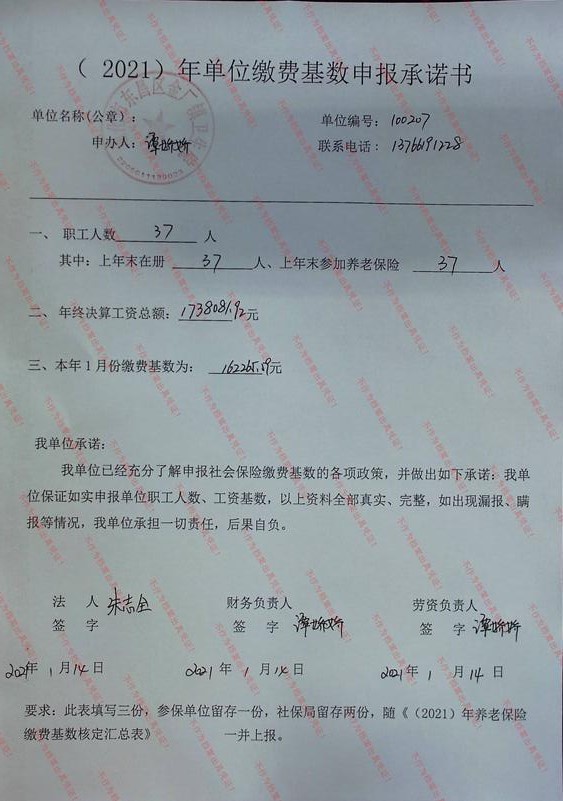 （ 2021）年单位缴费基数申报承诺书
单位名称(公章）： 单位编号： 100207
申办人： 谭娇娇 联系电话： 13766191228
一、 职工人数 37 人
其中：上年末在册 37 人、上年末参加养老保险 37 人
二、 年终决算工资总额： 1738081.92元
三、本年１月份缴费基数为： 162265.59元
我单位承诺：
我单位已经充分了解申报社会保险缴费基数的各项政策，并做出如下承诺：我单
位保证如实申报单位职工人数、工资基数，以上资料全部真实、完整，如出现漏报、瞒
报等情况，我单位承担一切责任，后果自负。
法 人 朱志全 财务负责人 劳资负责人
签 字 签 字 谭娇娇 签 字 谭娇娇
2021年 1 月14日 2021 年 1 月14日 2021 年 1 月 14 日
要求：此表填写三份，参保单位留存一份，社保局留存两份，随《（2021）年养老保险
缴费基数核定汇总表》 一并上报。